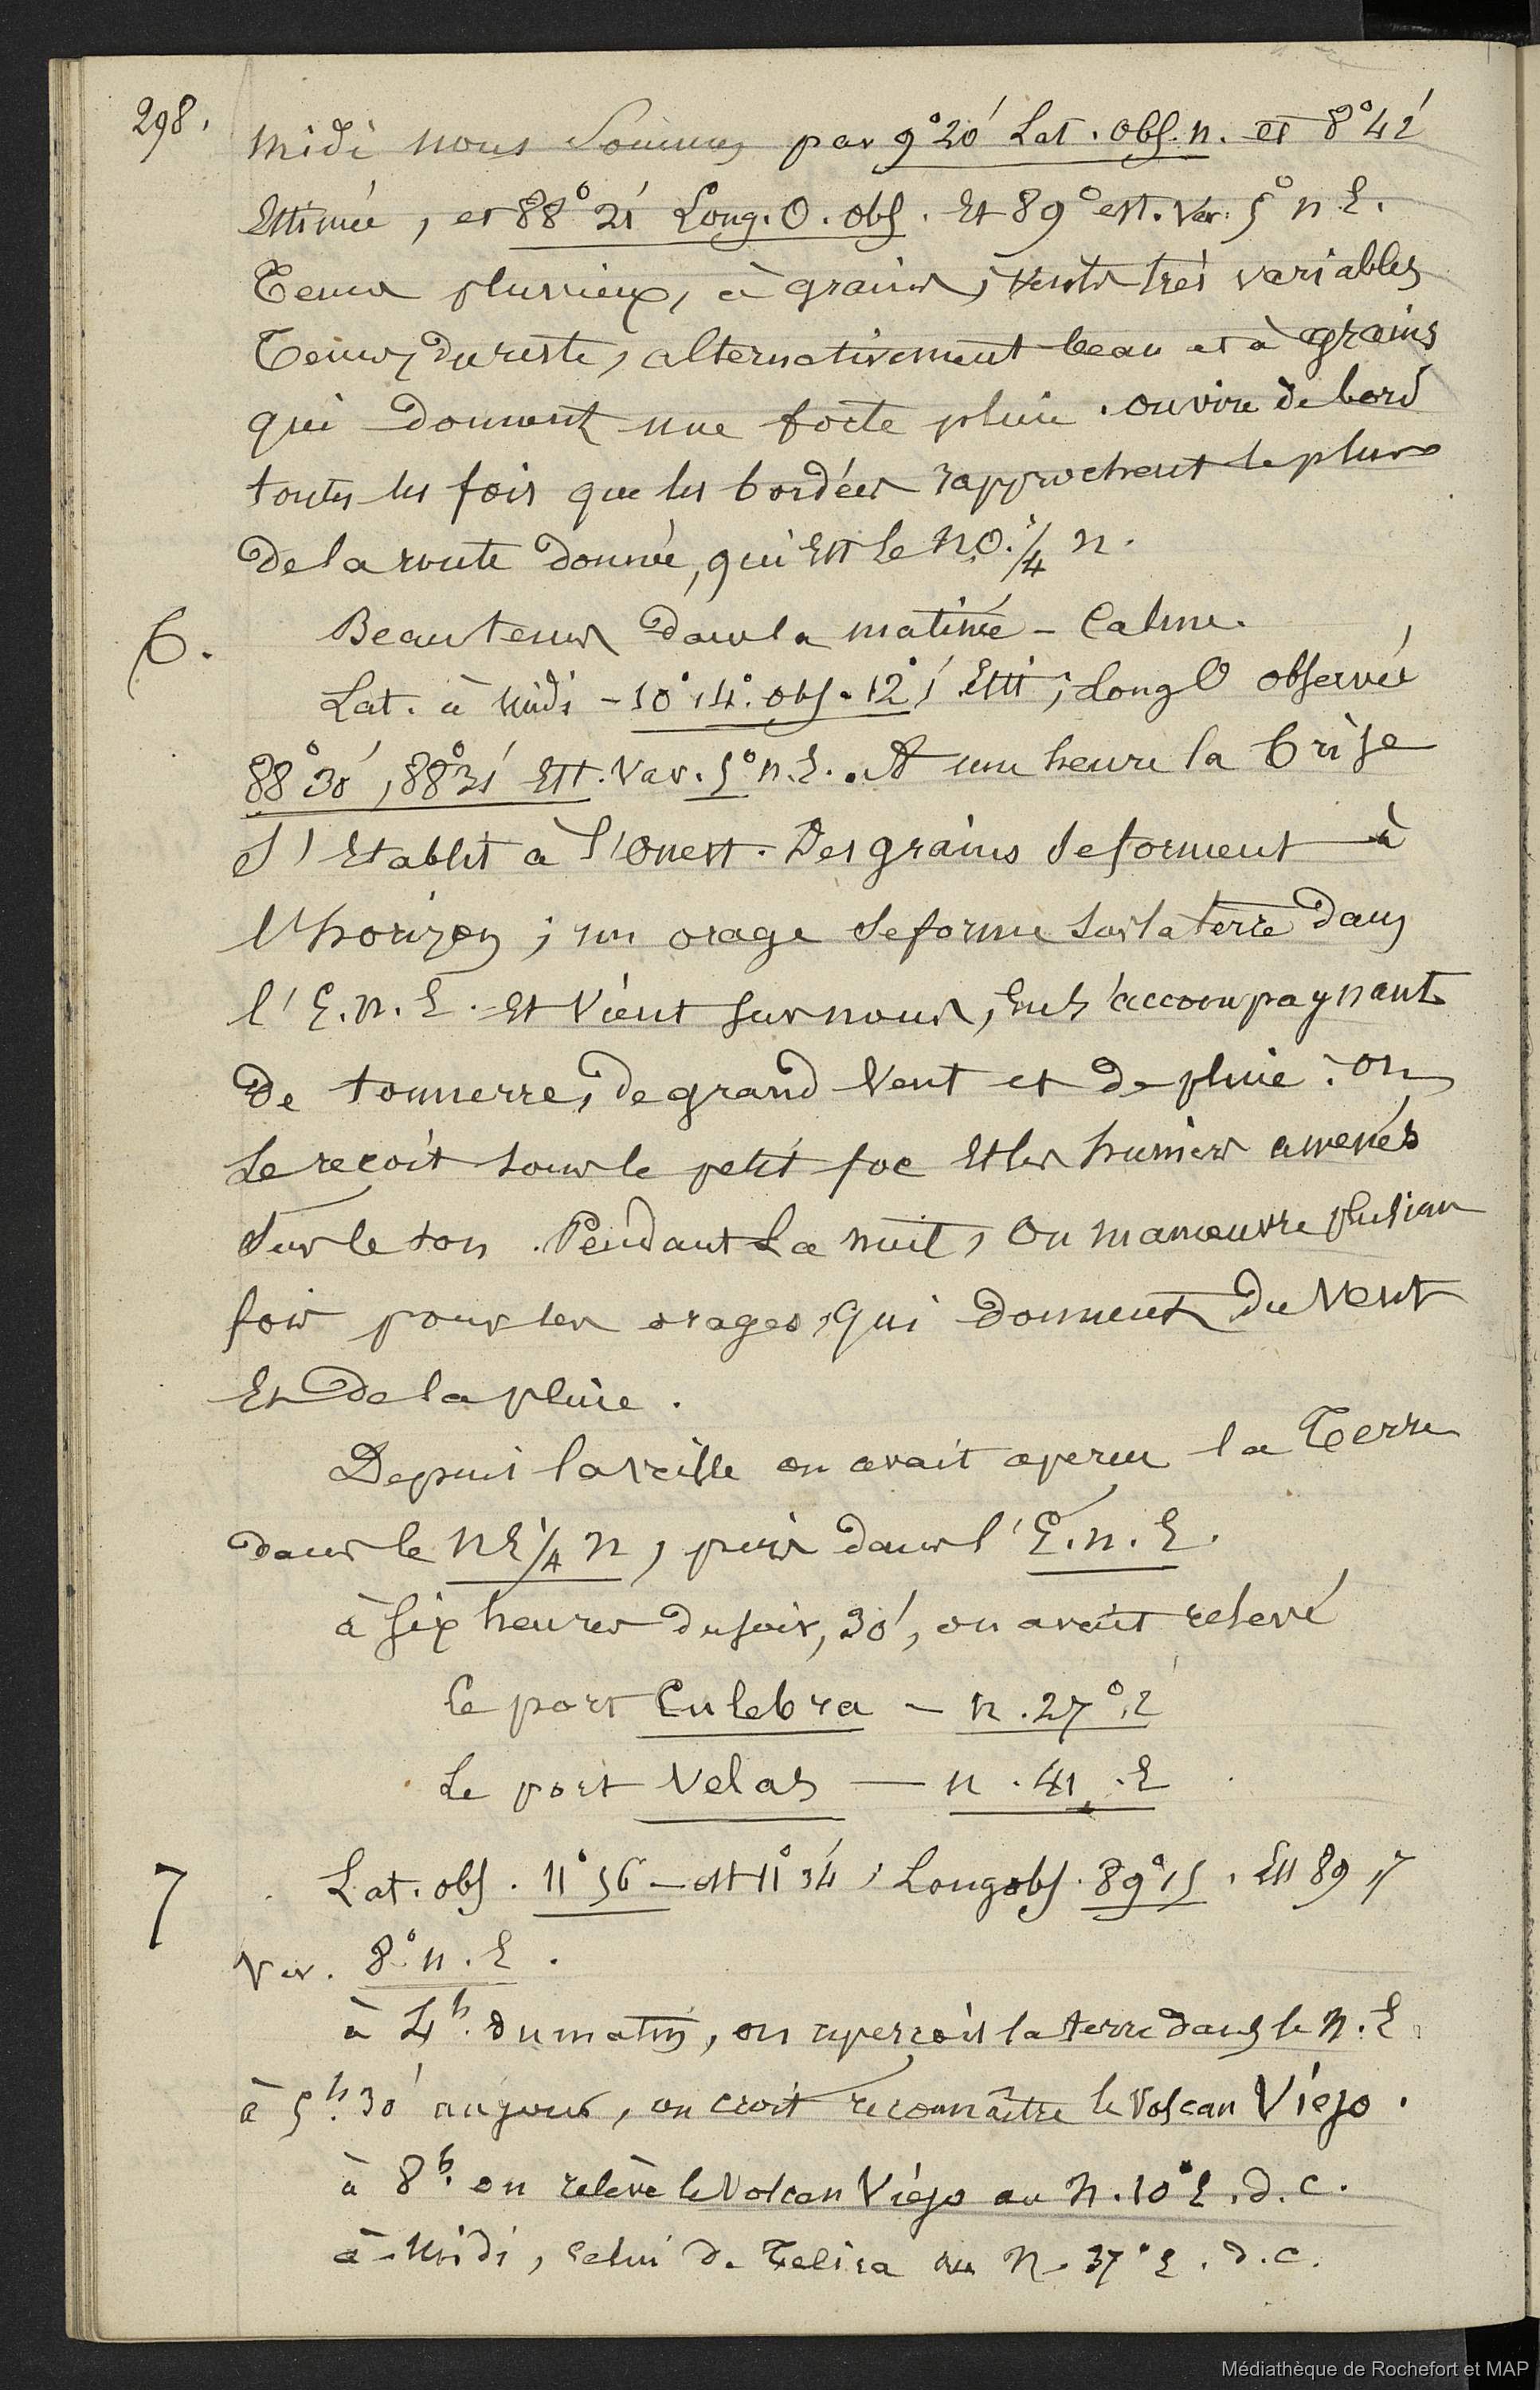 298.
midi nous sommes par 9°20' Lat. obs. n. et 8°42'
Estimée, et 88°21' Long. O. obs. Et 89° est. Var. 5° n E.
Tems pluvieux, à grains, vents très variables
Tems, du reste, alternativement beau et à grains
qui donnent une forte pluie. on vire de bord
toutes les fois que les bordées rapprochent le plus
de la route donnée, qui Est le N.O. 1/4 n.
6. Beau tems dans la matinée - Calme.
Lat. à midi - 10°14' obs. 12°1' Esti; Long O observée
88°30', 88°31' Est. Var. 5° n. E. A une heure la brise
s'Etablit à l'Ouest. Des grains se forment à
l'horizon; un orage se forme sur la terre dans
l'E. n. E. Et vient sur nous, En s'accompagnant
de tonnerre, de grand vent et de pluie: on
le reçoit sous le petit foc Et les huniers amenés
sur le ton. Pendant la nuit, on manœuvre plusieurs
fois pour les orages, qui donnent du vent
Et de la pluie.
Depuis la veille on avait aperçu la Terre
dans le n E 1/4 n, puis dans l'E. n. E.
à six heures du soir, 30', on avait relevé
le port Culebra - n. 27° E
Le port Velas - n. 41. E
7 Lat. obs. 11°56 - est 11°34', Long obs. 89°15. Est 89 17
Var. 8° n. E.
à 4h. du matin, on aperçoit la terre dans le n. E
à 5h. 30' au jour, on croit reconnaître le Volcan Viejo.
à 8h. on relève le Volcan Viejo au n. 10° E. d. c.
à midi, celui de Telica au n. 37° E. d. c.
Médiathèque de Rochefort et MAP